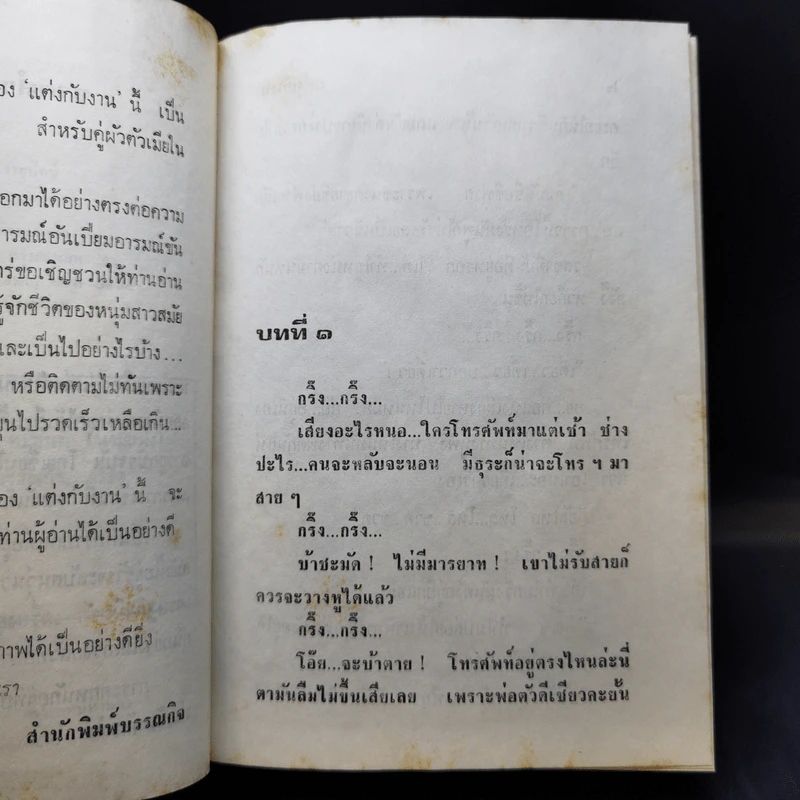 อง 'แต่งกับงาน' นี้ เป็น
สำหรับคู่ผัวตัวเมียใน
อกมาได้อย่างตรงต่อความ
ารมณ์อันเปี่ยมอารมณ์ขัน
ร่ขอเชิญชวนให้ท่านอ่าน
รู้จักชีวิตของหนุ่มสาวสมัย
และเป็นไปอย่างไรบ้าง...
หรือติดตามไม่ทันเพราะ
มุนไปรวดเร็วเหลือเกิน...
อง 'แต่งกับงาน' นี้ จะ
ท่านผู้อ่านได้เป็นอย่างดี
าพได้เป็นอย่างดียิ่ง
รา
สำนักพิมพ์บรรณกิจ
บทที่ ๑
กริ๊ง...กริ๊ง...
เสียงอะไรหนอ...ใครโทรศัพท์มาแต่เช้า ช่าง
ปะไร...คนจะหลับจะนอน มีธุระก็น่าจะโทร ฯ มา
สาย ๆ
กริ๊ง...กริ๊ง...
บ้าชะมัด ! ไม่มีมารยาท ! เขาไม่รับสายก็
ควรจะวางหูได้แล้ว
กริ๊ง...กริ๊ง...
โอ๊ย...จะบ้าตาย ! โทรศัพท์อยู่ตรงไหนล่ะนี่
ตามันลืมไม่ขึ้นเสียเลย เพราะพ่อตัวดีเชียวคะยั้น